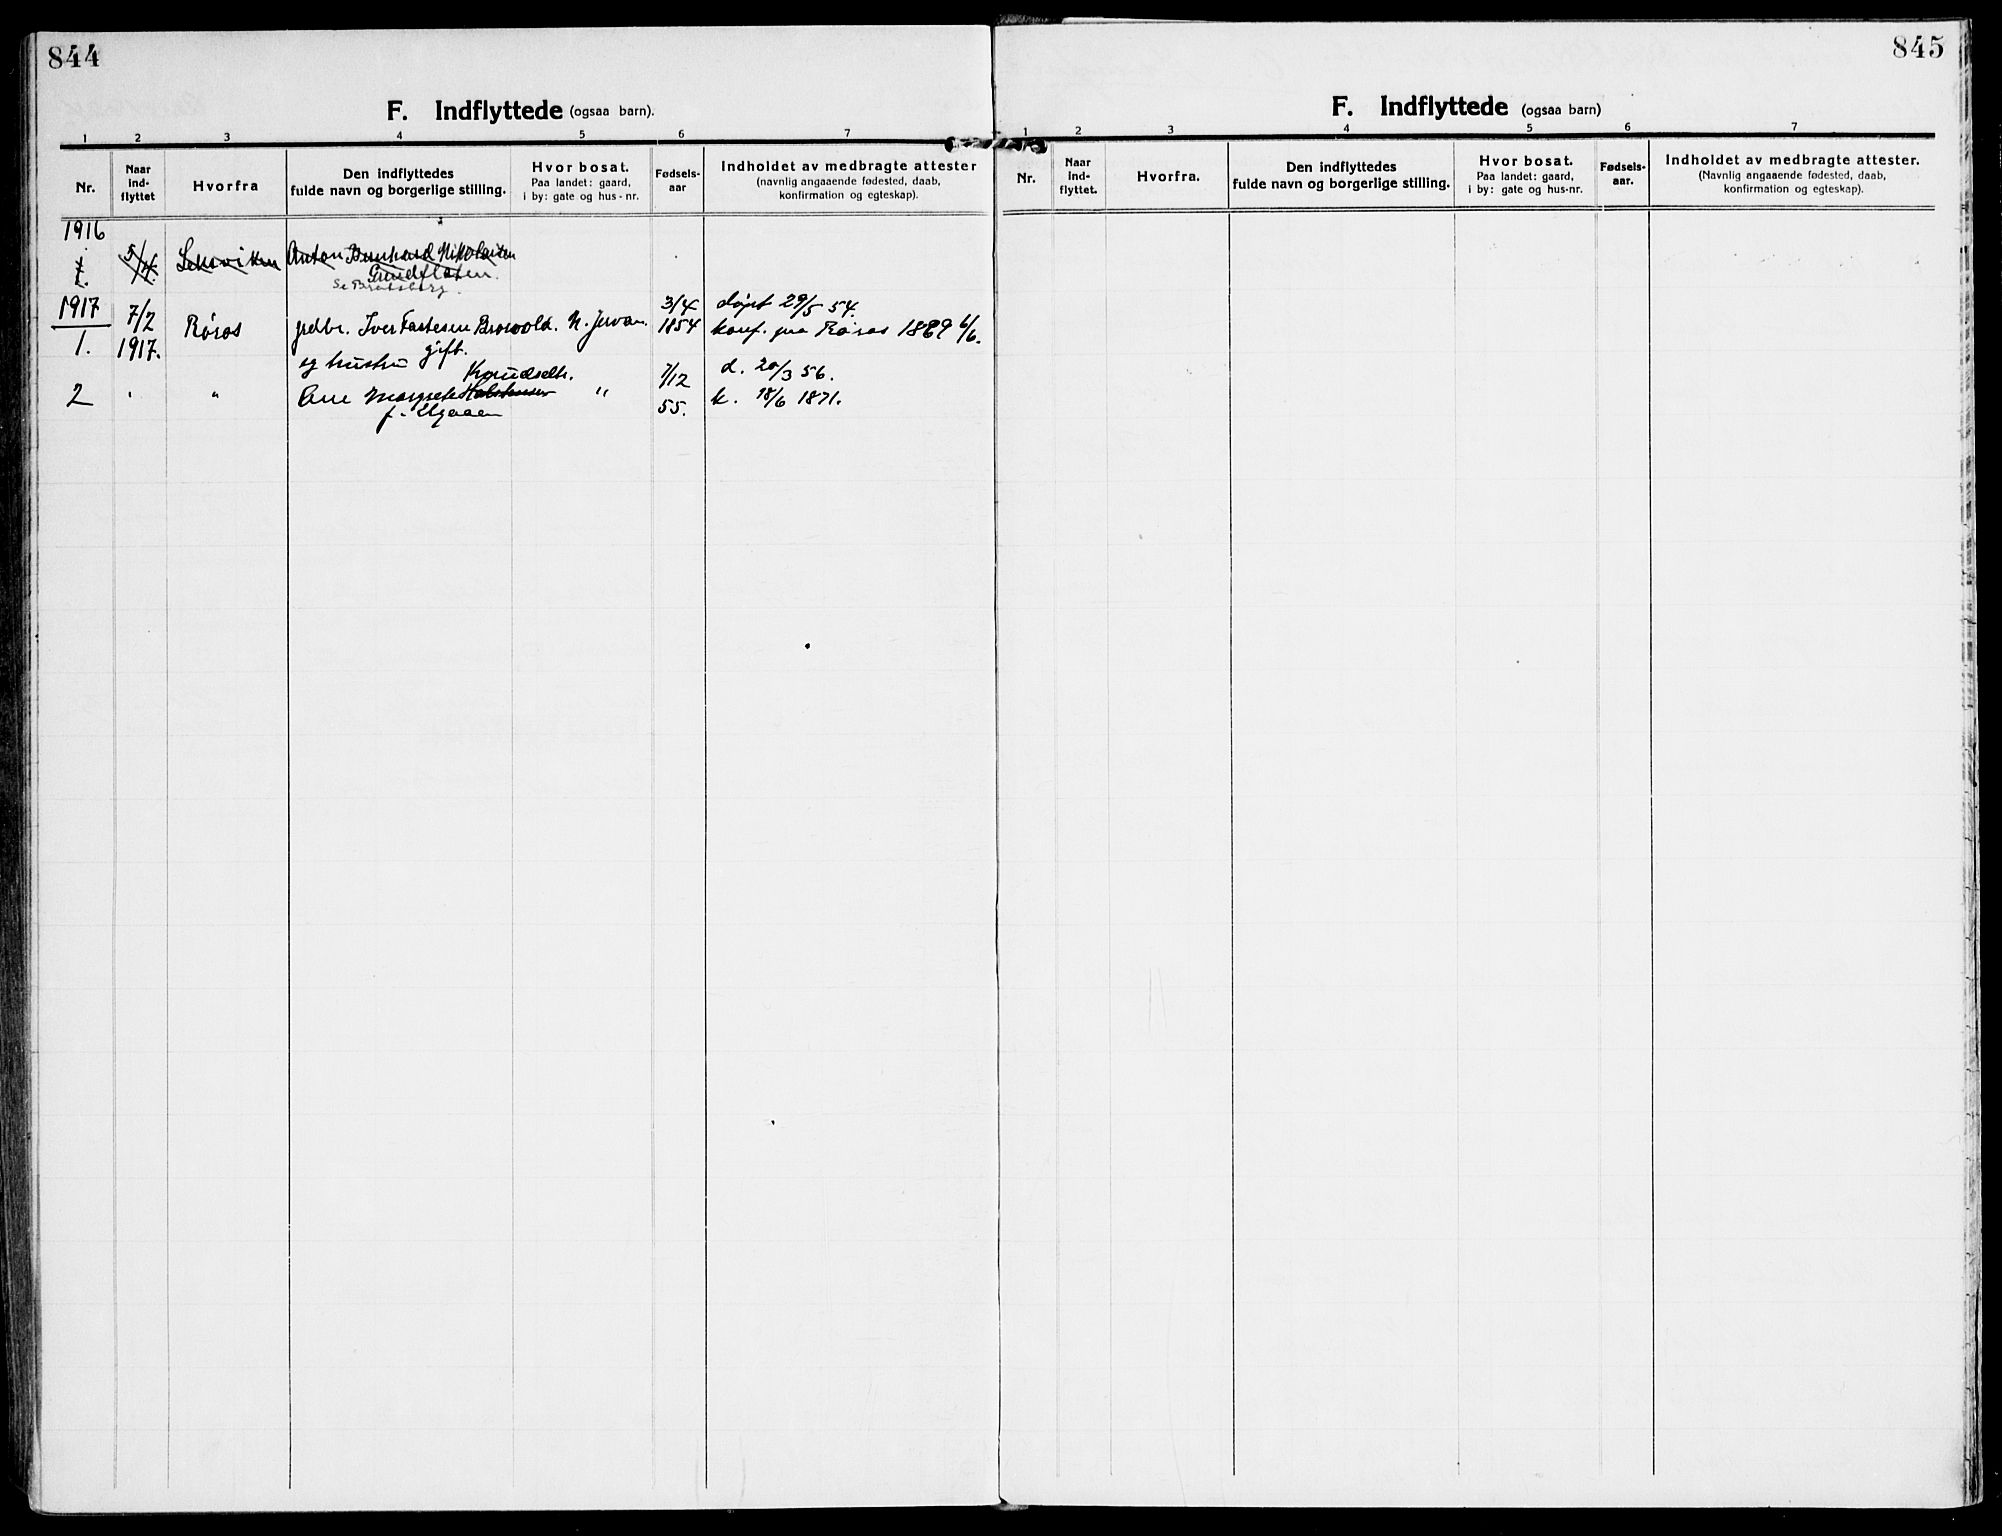 844
F. Indflyttede (ogsaa barn).
1 2 3 4 5 6 7
Nr. Naar ind- flyttet Hvorfra Den indflyttedes fulde navn og borgerlige stilling. Hvor bosat. Paa landet: gaard, i by: gate og hus-nr. Fødsels- aar Indholdet av medbragte attester (navnlig angaaende fødested, daab, konfirmation og egteskap).
1916
1. 5/4. Leksviken Anton Bernhard Nikolaisen
Grindflaten.
Se Bratsberg.
1917 7/2 3/4 døpt 29/5 54.
Røros grdbr. Iver Fastesen Brovold. N. Jervan. 1854 konf. paa Røros 1869 6/6.
1. 1917. gift.
og hustru Knudsdtr. 7/12 d. 20/3 56.
2 " " Ane Margrete " 55. k. 18/6 1871.
f. Elgaaen
845
F. Indflyttede (ogsaa barn)
1 2 3 4 5 6 7
Nr. Naar ind- flyttet. Hvorfra. Den indflyttedes fulde navn og borgerlige stilling. Hvor bosat. Paa landet: gaard, i by: gate og hus-nr. Fødsels- aar. Indholdet av medbragte attester. (Navnlig angaaende fødested, daab, konfirmation og egteskap).